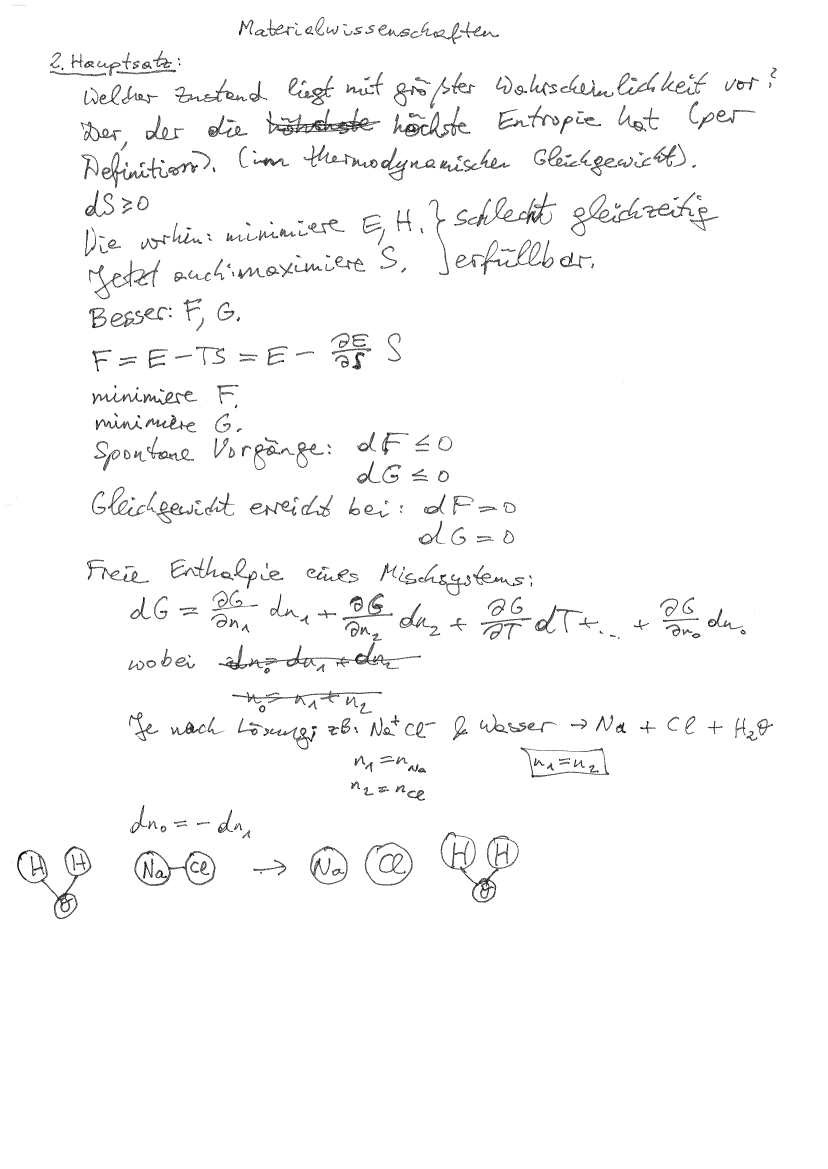 Materialwissenschaften
2. Hauptsatz:
Welcher Zustand liegt mit größter Wahrscheinlichkeit vor?
Der, der die höchste Entropie hat (per
Definition). (im thermodynamischen Gleichgewicht).
dS ≥ 0
Die vorhin: minimiere E, H. } schlecht gleichzeitig
Jetzt auch: maximiere S. } erfüllbar.
Besser: F, G.
F = E − TS = E − ∂E/∂S S
minimiere F.
minimiere G.
Spontane Vorgänge: dF ≤ 0
dG ≤ 0
Gleichgewicht erreicht bei: dF = 0
dG = 0
Freie Enthalpie eines Mischsystems:
dG = ∂G/∂n₁ dn₁ + ∂G/∂n₂ dn₂ + ∂G/∂T dT + ... + ∂G/∂n₀ dn₀
wobei dn₀ = dn₁ + dn₂
n₀ = n₁ + n₂
Je nach Lösung; zb. Na⁺Cl⁻ & Wasser → Na + Cl + H₂O
n₁ = n_Na n₁ = n₂
n₂ = n_Cl
dn₀ = − dn₁
H H Na Cl → Na Cl H H
O O